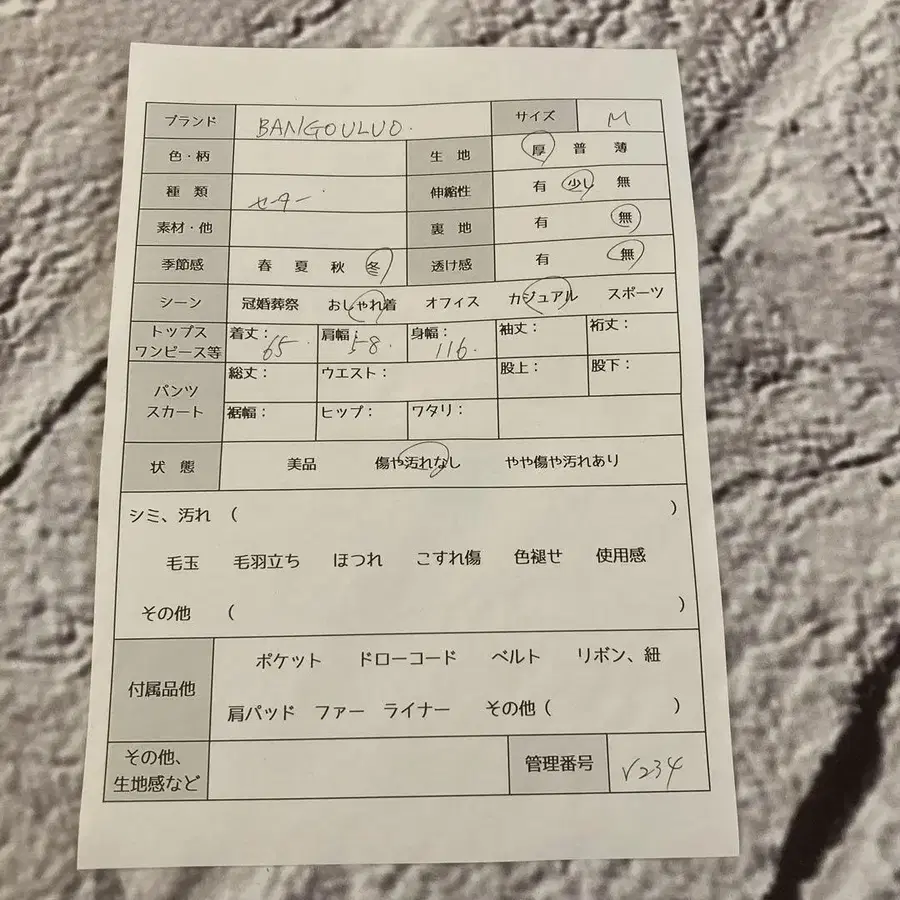 ブランド BANGOULUO. サイズ M
色・柄 生地 厚 普 薄
種類 セーター 伸縮性 有 少し 無
素材・他 裏地 有 無
季節感 春 夏 秋 冬 透け感 有 無
シーン 冠婚葬祭 おしゃれ着 オフィス カジュアル スポーツ
トップス ワンピース等 着丈： 65 肩幅： 58 身幅： 116 袖丈： 裄丈：
パンツ スカート 総丈： ウエスト： 股上： 股下：
裾幅： ヒップ： ワタリ：
状態 美品 傷や汚れなし やや傷や汚れあり
シミ、汚れ （ ）
毛玉 毛羽立ち ほつれ こすれ傷 色褪せ 使用感
その他 （ ）
付属品他 ポケット ドローコード ベルト リボン、紐
肩パッド ファー ライナー その他（ ）
その他、 生地感など 管理番号 V234